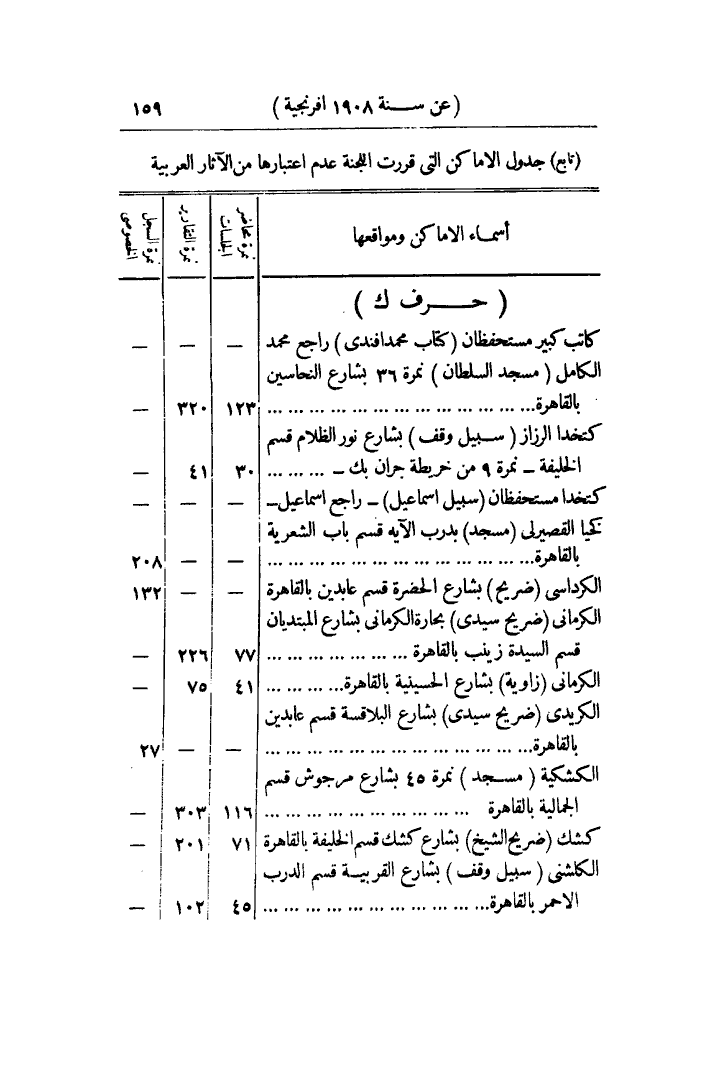 (عن سنة ١٩٠٨ افرنجية) ١٥٩
(تابع) جدول الاماكن التى قررت اللجنة عدم اعتبارها من الآثار العربية
أسماء الاماكن ومواقعها | نمرة محاضر الجلسات | نمرة التقارير | نمرة السجل الخصوصى
(حرف ك)
كاتب كبير مستحفظان (كتاب محمد افندى) راجع محمد — — —
الكامل (مسجد السلطان) نمرة ٣٦ بشارع النحاسين
بالقاهرة... ... ... ... ... ... ... ... ... ... ... ... ... ١٢٣ ٣٢٠ —
كتخدا الرزاز (سبيل وقف) بشارع نور الظلام قسم
الخليفة – نمرة ٩ من خريطة جران بك – ... ... ... ٣٠ ٤١ —
كتخدا مستحفظان (سبيل اسماعيل) – راجع اسماعيل – — — —
كخيا القصيرلى (مسجد) بدرب الآيه قسم باب الشعرية
بالقاهرة... ... ... ... ... ... ... ... ... ... ... ... ... — — ٢٠٨
الكرداسى (ضريح) بشارع الحضرة قسم عابدين بالقاهرة — — ١٣٢
الكرمانى (ضريح سيدى) بحارة الكرمانى بشارع المبتديان
قسم السيدة زينب بالقاهرة ... ... ... ... ... ... ... ٧٧ ٢٢٦ —
الكرمانى (زاوية) بشارع الحسينية بالقاهرة... ... ... ... ٤١ ٧٥ —
الكريدى (ضريح سيدى) بشارع البلاقسة قسم عابدين
بالقاهرة... ... ... ... ... ... ... ... ... ... ... ... ... — — ٢٧
الكشكية (مسجد) نمرة ٤٥ بشارع مرجوش قسم
الجمالية بالقاهرة ... ... ... ... ... ... ... ... ... ... ١١٦ ٣٠٣ —
كشك (ضريح الشيخ) بشارع كشك قسم الخليفة بالقاهرة ٧١ ٢٠١ —
الكلشنى (سبيل وقف) بشارع القربية قسم الدرب
الاحمر بالقاهرة... ... ... ... ... ... ... ... ... ... ... ٤٥ ١٠٢ —